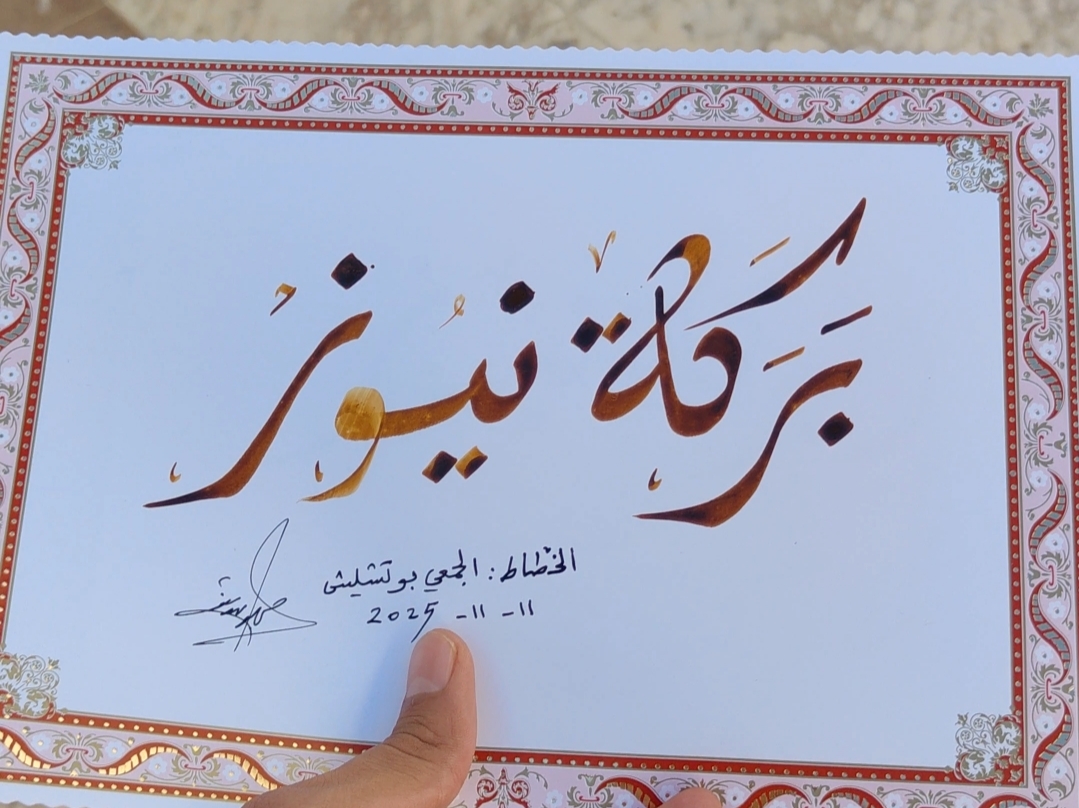 بركة نيوز
الخطاط : الجمعي بوتشليش
11 - 11 - 2025